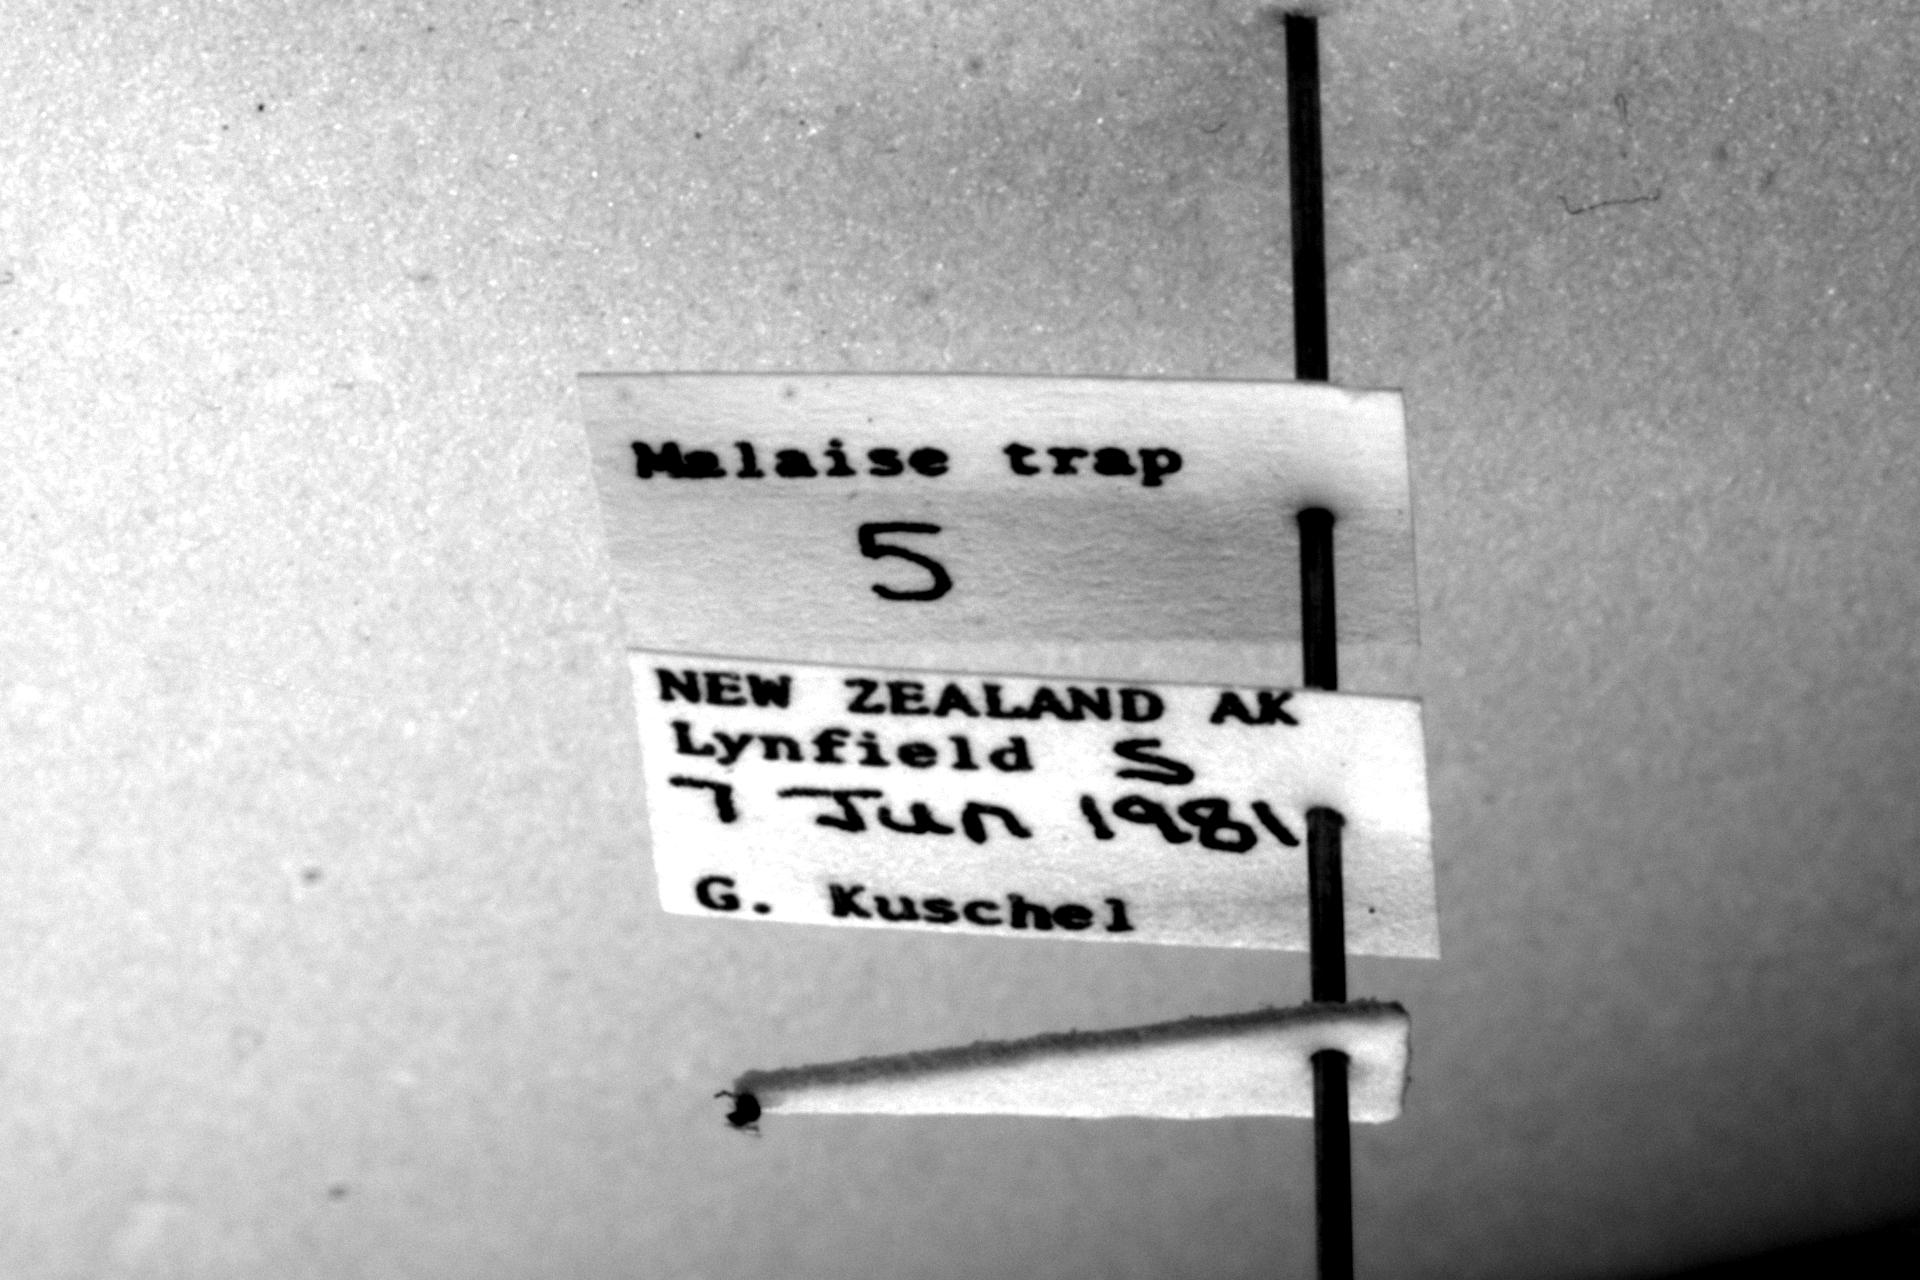 Malaise trap
5
NEW ZEALAND AK
Lynfield S
7 Jun 1981
G. Kuschel